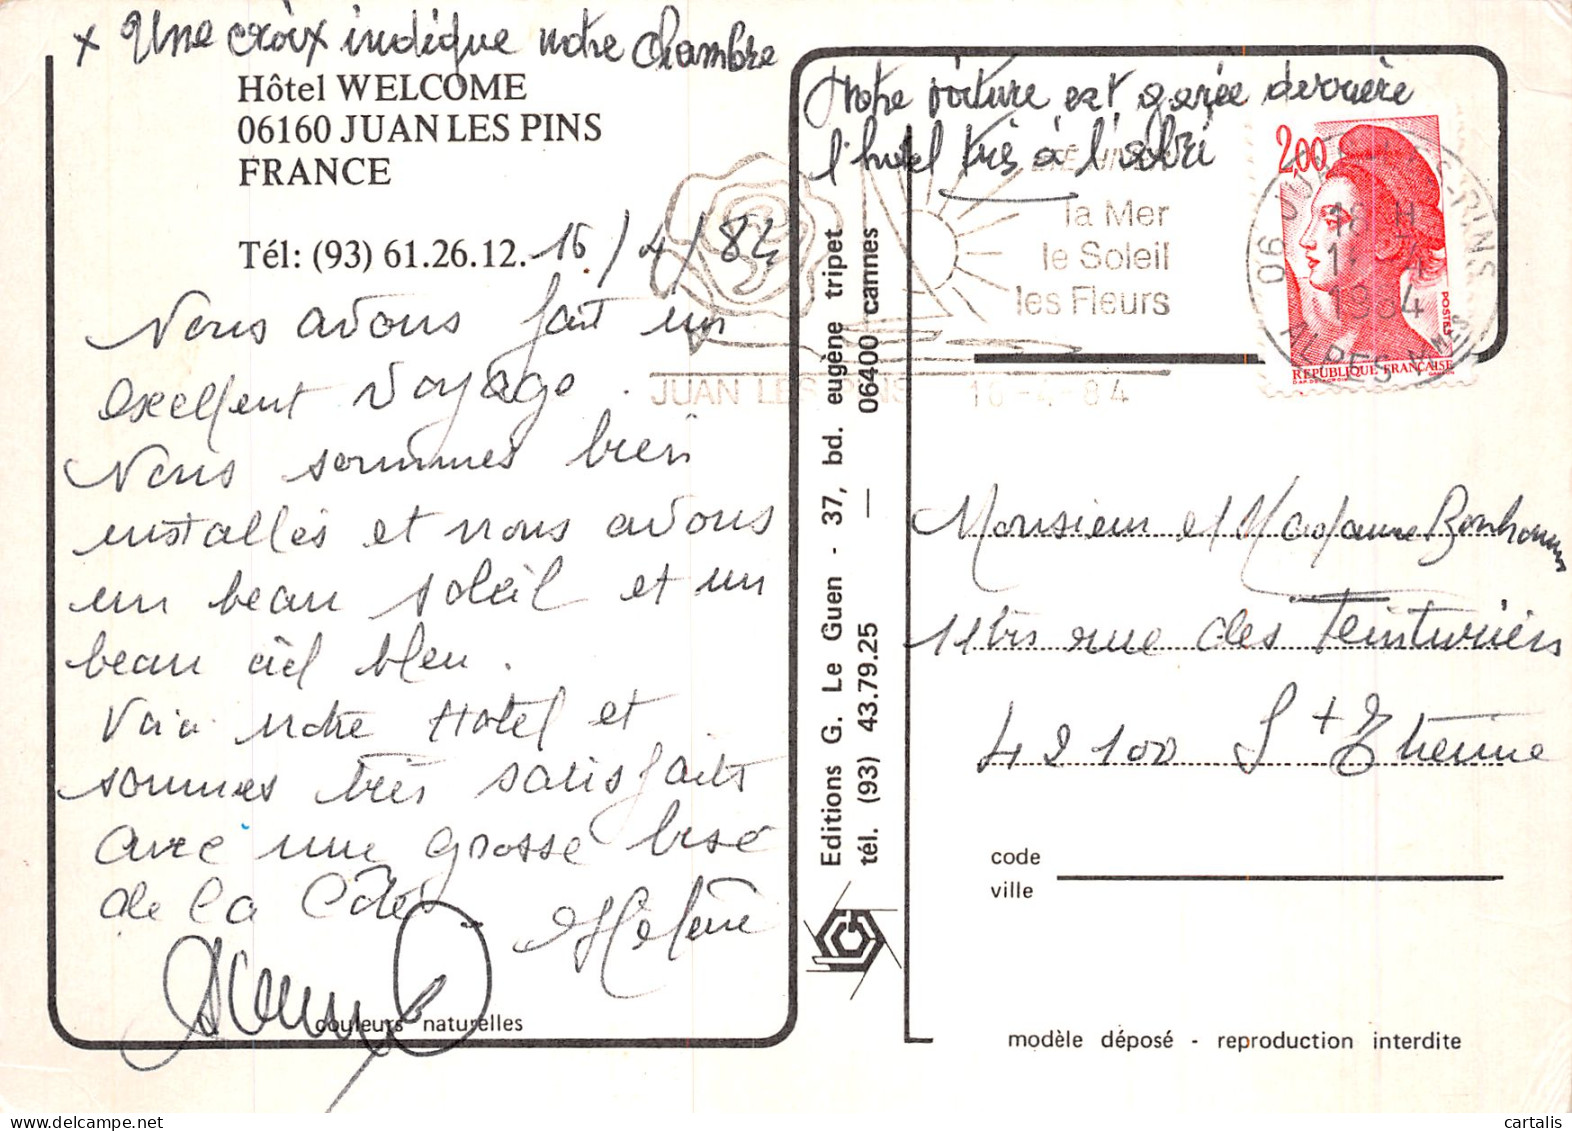 x Une croix indique notre chambre
Hôtel WELCOME
06160 JUAN LES PINS
FRANCE
Tél: (93) 61.26.12.
16/4/84
Nous avons fait un
excellent voyage.
Nous sommes bien
installés et nous avons
un beau soleil et un
beau ciel bleu.
Voici notre Hotel et
sommes très satisfaits
avec une grosse bise
de la Côte.
Helène
couleurs naturelles
Editions G. Le Guen - 37, bd. eugène tripet
tél. (93) 43.79.25 — 06400 cannes
Notre voiture est garée derrière
l'hotel très à l'abri
la Mer
le Soleil
les Fleurs
JUAN LES PINS 16-4-84
2,00
POSTES
REPUBLIQUE FRANÇAISE
06 JUAN-LES-PINS
1984
ALPES-MMES
Monsieur et Madame Bonhomme
11bis rue des Teinturiers
42100 St Etienne
code
ville
modèle déposé - reproduction interdite
cartalis